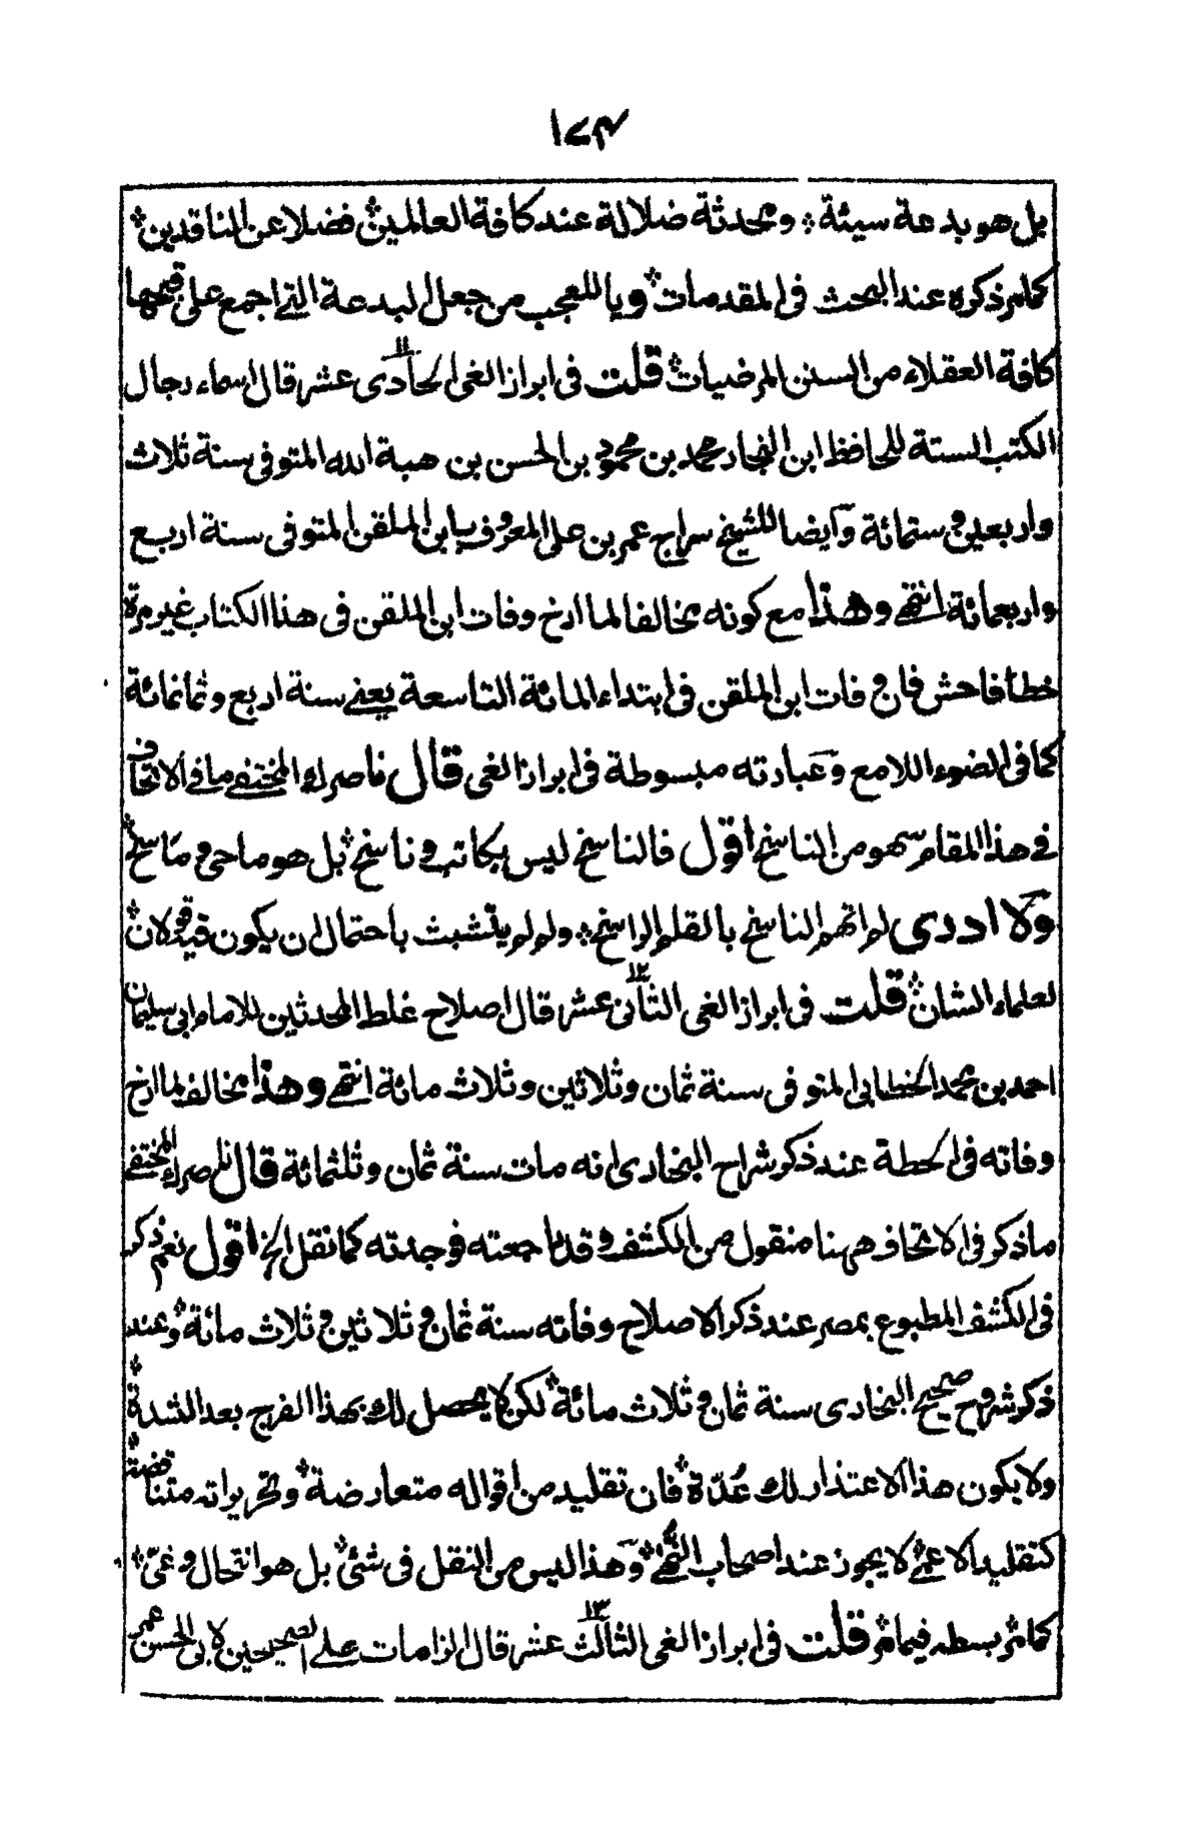 ١٧٤
بل هو بدعة سيئة ؞ ومحدثة ضلالة عند كافة العالمين؞ فضلا عن الناقدين؞
كما مر ذكره عند البحث فى المقدمات؞ ويا للعجب من جعل البدعة التى اجمع على قبحها
كافة العقلاء من السنن المرضيات؞ قلت فى ابراز الغى الحادى عشر ١١ قال اسماء رجال
الكتب الستة للحافظ ابن النجار محمد بن محمود بن الحسن بن هبة الله المتوفى سنة ثلاث
واربعين و ستمائة وايضا للشيخ سراج عمر بن على المعروف بابن الملقن المتوفى سنة اربع
واربعمائة انتهى وهذا مع كونه مخالفا لما ارخ وفات ابن الملقن فى هذا الكتاب غير مرة
خطأ فاحش فان وفات ابن الملقن فى ابتداء المائة التاسعة يعنى سنة اربع و ثمانمائة
كما فى الضوء اللامع وعبارته مبسوطة فى ابراز الغى قال ناصرك المختفى ما فى الاتحاف
فى هذا المقام سهو من الناسخ اقول فالناسخ ليس بكاتب و ناسخ؞ بل هو ماحى و ماسخ؞
ولا ادرى لم اتهم الناسخ بالقلم الراسخ؞ ولم لم يتشبث باحتمال ان يكون فيه قولان؞
لعلماء الشان؞ قلت فى ابراز الغى الثانى عشر ١٢ قال اصلاح غلط المحدثين للامام ابى سليمان
احمد بن محمد الخطابى المتوفى سنة ثمان وثلاثين وثلاث مائة انتهى وهذا مخالف لما ارخ
وفاته فى الحطة عند ذكر شراح البخارى انه مات سنة ثمان وثلثمائة قال ناصرك المختفى
ما ذكر فى الاتحاف ههنا منقول من الكشف و قد راجعته فوجدته كما نقل الخ اقول نعم ذكر
فى الكشف المطبوع بمصر عند ذكر الاصلاح وفاته سنة ثمان و ثلاثين و ثلاث مائة؞ وعند
ذكر شروح صحيح البخارى سنة ثمان و ثلاث مائة؞ لكن لا يحصل لك بهذا الفرج بعد الشدة؞
ولا يكون هذا الاعتذار لك عُدّة؞ فان تقليد من اقواله متعارضة؞ وتحريراته متناقضة؞
كتقليد الاعمى لا يجوز عند اصحاب النُّهى؞ وهذا ليس من النقل فى شئ؞ بل هو انتحال و غىّ؞
كما مرّ بسطه فيما مرّ قلت فى ابراز الغى الثالث عشر ١٣ قال الزامات على الصحيحين لابى الحسن عمر